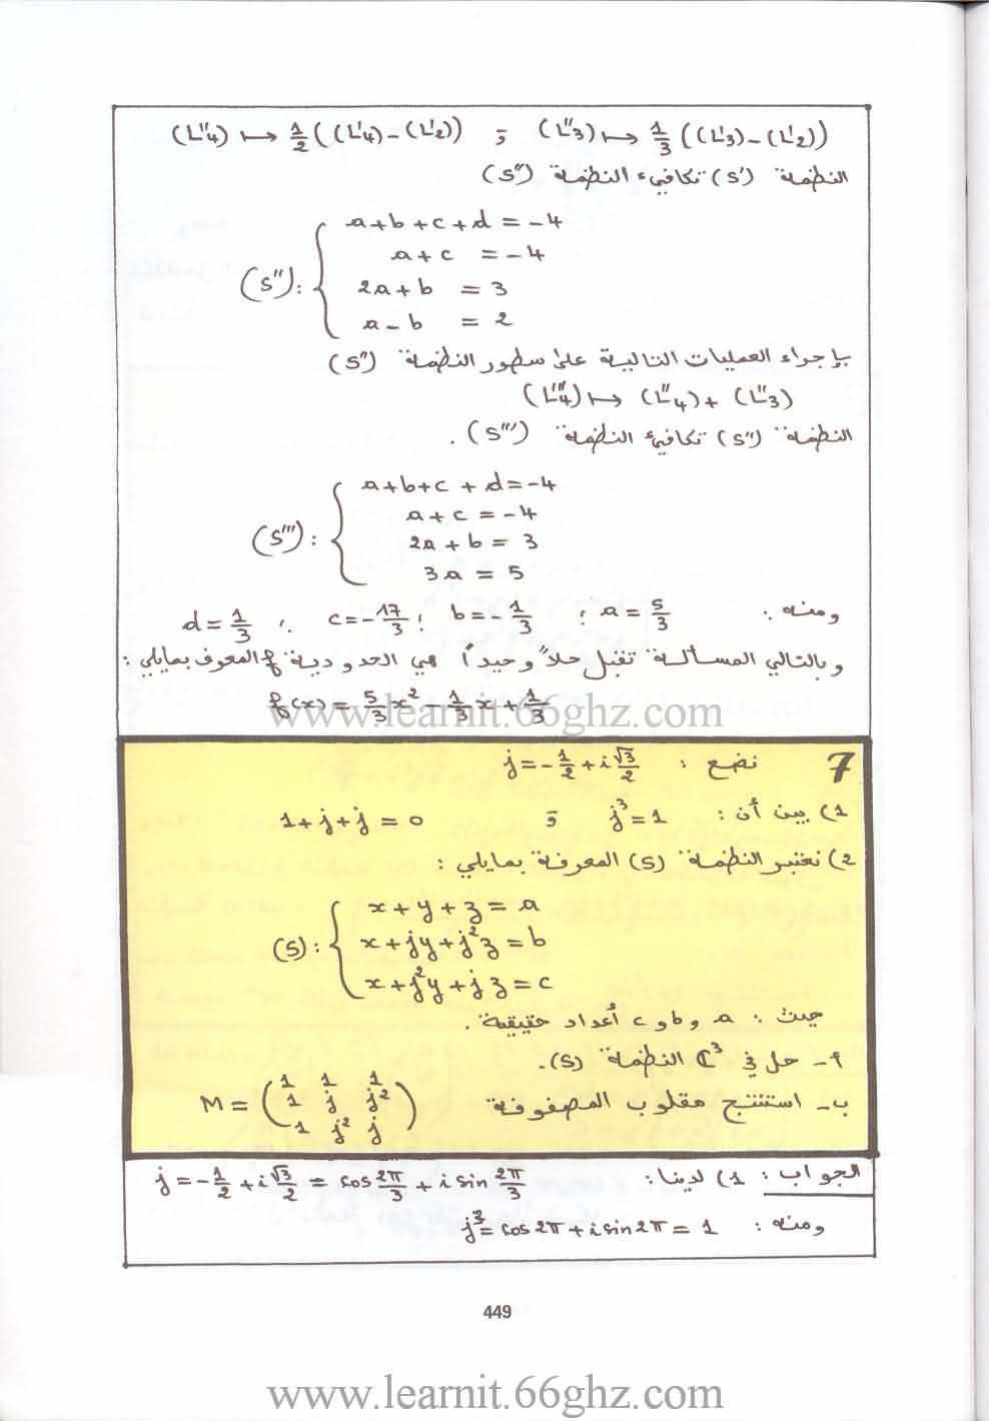 (L"4) ↦ 1/2 ((L'4) - (L'2)) ; (L"3) ↦ 1/3 ((L'3) - (L'2))
النظمة (S') تكافيء النظمة (S")
(S"): { a+b+c+d = -4
a+c = -4
2a+b = 3
a-b = 2
بإجراء العمليات التالية على سطور النظمة (S")
(L'''4) ↦ (L"4) + (L"3)
النظمة (S") تكافيء النظمة (S''').
(S'''): { a+b+c+d = -4
a+c = -4
2a+b = 3
3a = 5
ومنه : a = 5/3 ; b = -1/3 ; c = -17/3 ; d = 1/3
وبالتالي المسألة تقبل حلا وحيدا هي الحدودية f المعرف بمايلي :
f(x) = 5/3 x² - 1/3 x + 1/3
www.learnit.66ghz.com
7 نضع : j = -1/2 + i √3/2
1) بين أن : j³ = 1 و 1+j+j = 0
2) نعتبر النظمة (S) المعرفة بمايلي :
(S): { x+y+z = a
x+jy+j²z = b
x+j²y+jz = c
حيث : a و b و c أعداد حقيقية .
أ- حل في ℂ³ النظمة (S).
ب- استنتج مقلوب المصفوفة M = (1 1 1
1 j j²
1 j² j)
الجواب : 1) لدينا : j = -1/2 + i √3/2 = cos 2π/3 + i sin 2π/3
ومنه : j³ = cos 2π + i sin 2π = 1
449
www.learnit.66ghz.com